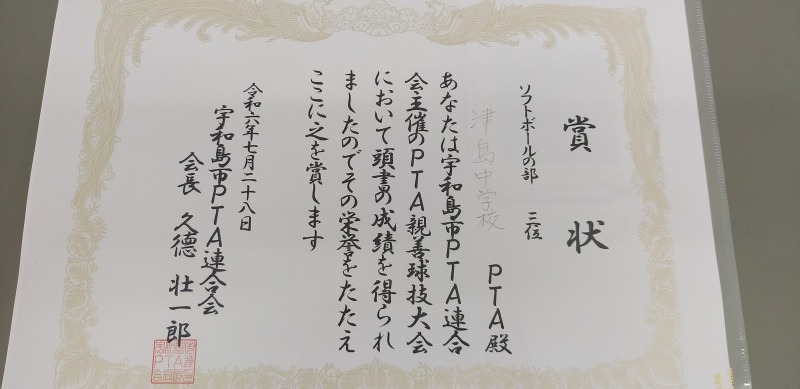 賞状
ソフトボールの部 三位
津島中学校 PTA殿
あなたは宇和島市PTA連合
会主催のPTA親善球技大会
において頭書の成績を得られ
ましたのでその栄誉をたたえ
ここに之を賞します
令和六年七月二十八日
宇和島市PTA連合会
会長 久德 壮一郎